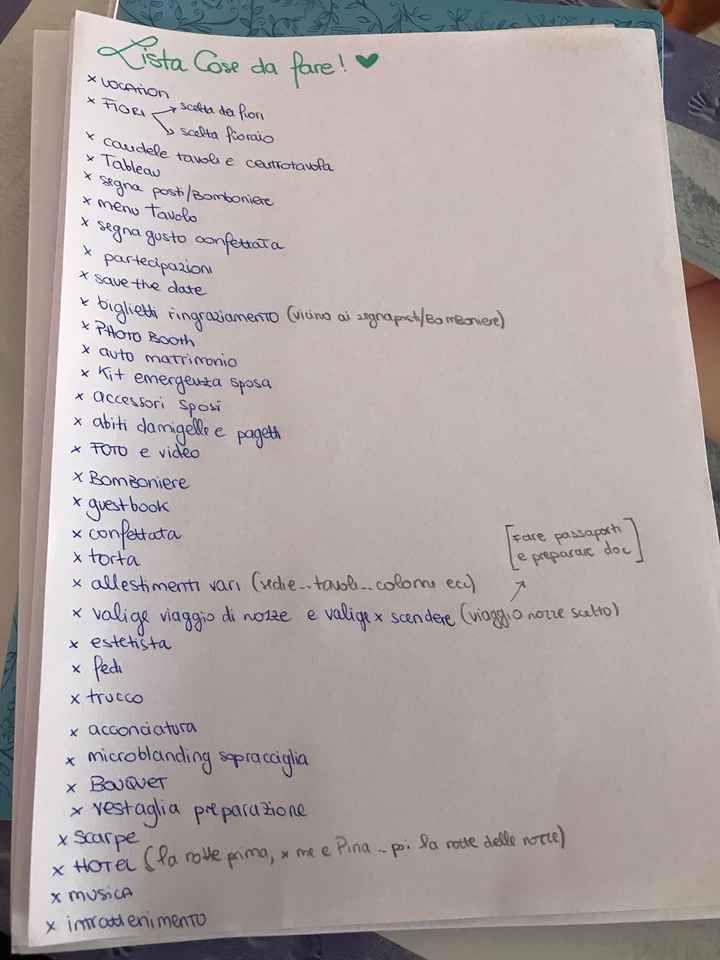 Lista Cose da fare! ♥
x LOCATION
x FIORI → scelta dei fiori
→ scelta fioraio
x candele tavoli e centrotavola
x Tableau
x segna posti/Bomboniere
x menu Tavolo
x segna gusto confettata
x partecipazioni
x save the date
x biglietti ringraziamento (vicino ai segnaposti/Bomboniere)
x PHOTO BOOTH
x auto matrimonio
x Kit emergenza sposa
x accessori sposi
x abiti damigelle e paggetti
x FOTO e video
x Bomboniere
x guestbook
x confettata
x torta
[Fare passaporti
e preparare doc]
x allestimenti vari (sedie.. tavoli.. colonne ecc)
x valige viaggio di nozze e valige x scendere (viaggio nozze scelto)
x estetista
x fedi
x trucco
x acconciatura
x microblanding sopracciglia
x BOUQUET
x vestaglia preparazione
x scarpe
x HOTEL (la notte prima, x me e Pina - poi la notte delle nozze)
x MUSICA
x intrattenimento